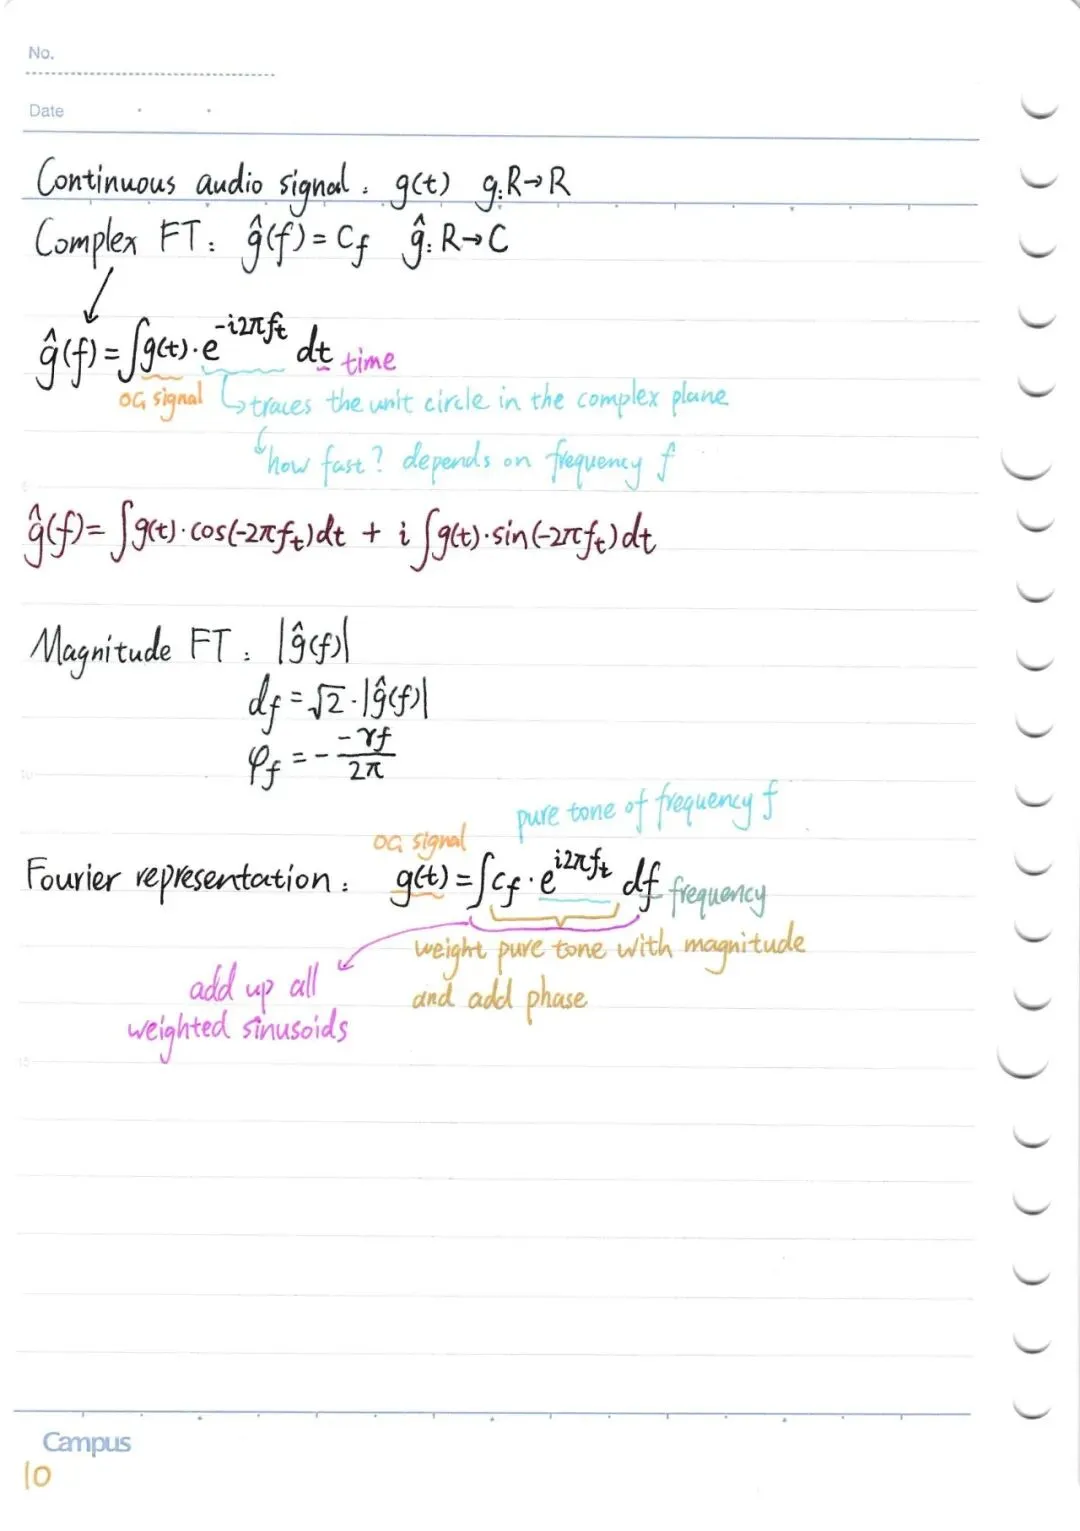 No.
Date
Continuous audio signal: g(t) g:R→R
Complex FT: ĝ(f)=Cf ĝ:R→C
ĝ(f)=∫g(t)·e^-i2πft dt time
OG signal ↳traces the unit circle in the complex plane
↳how fast? depends on frequency f
ĝ(f)=∫g(t)·cos(-2πft)dt + i∫g(t)·sin(-2πft)dt
Magnitude FT: |ĝ(f)|
df=√2·|ĝ(f)|
φf=- -γf/2π
pure tone of frequency f
OG signal
Fourier representation: g(t)=∫Cf·e^i2πft df frequency
weight pure tone with magnitude
and add phase
add up all
weighted sinusoids
Campus
10